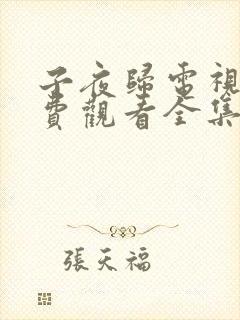 子夜歸電視
費觀看全集
張天福